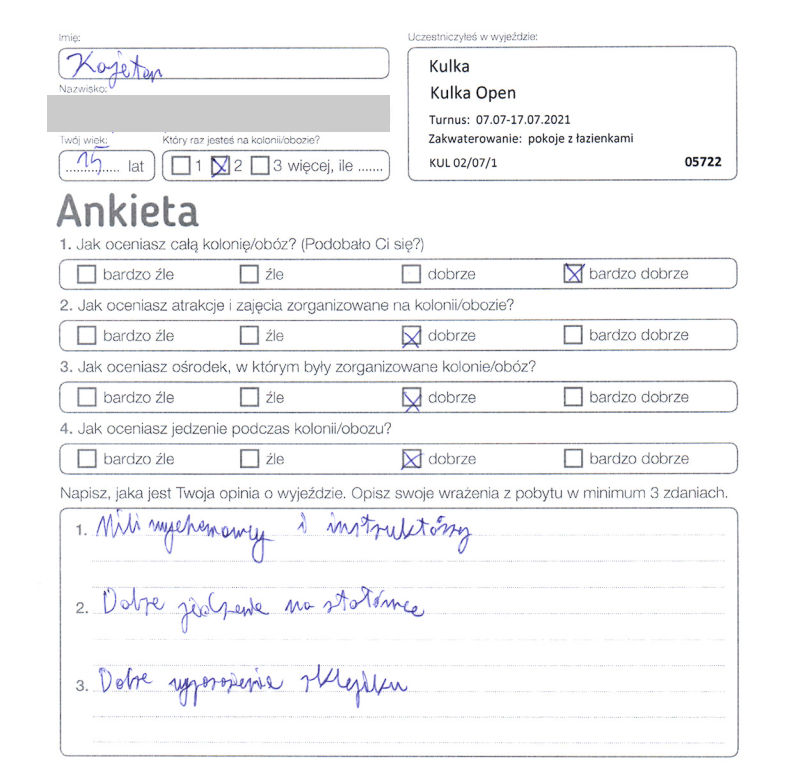 Imię:
Kajetan
Nazwisko:
Twój wiek:
15 lat
Który raz jesteś na kolonii/obozie?
1 2 3 więcej, ile .......
Uczestniczyłeś w wyjeździe:
Kulka
Kulka Open
Turnus: 07.07-17.07.2021
Zakwaterowanie: pokoje z łazienkami
KUL 02/07/1 05722
Ankieta
1. Jak oceniasz całą kolonię/obóz? (Podobało Ci się?)
bardzo źle źle dobrze bardzo dobrze
2. Jak oceniasz atrakcje i zajęcia zorganizowane na kolonii/obozie?
bardzo źle źle dobrze bardzo dobrze
3. Jak oceniasz ośrodek, w którym były zorganizowane kolonie/obóz?
bardzo źle źle dobrze bardzo dobrze
4. Jak oceniasz jedzenie podczas kolonii/obozu?
bardzo źle źle dobrze bardzo dobrze
Napisz, jaka jest Twoja opinia o wyjeździe. Opisz swoje wrażenia z pobytu w minimum 3 zdaniach.
1. Mili wychowawcy i instruktórzy
2. Dobre jedzenie na stołówce
3. Dobre wyposożenie sklepiku